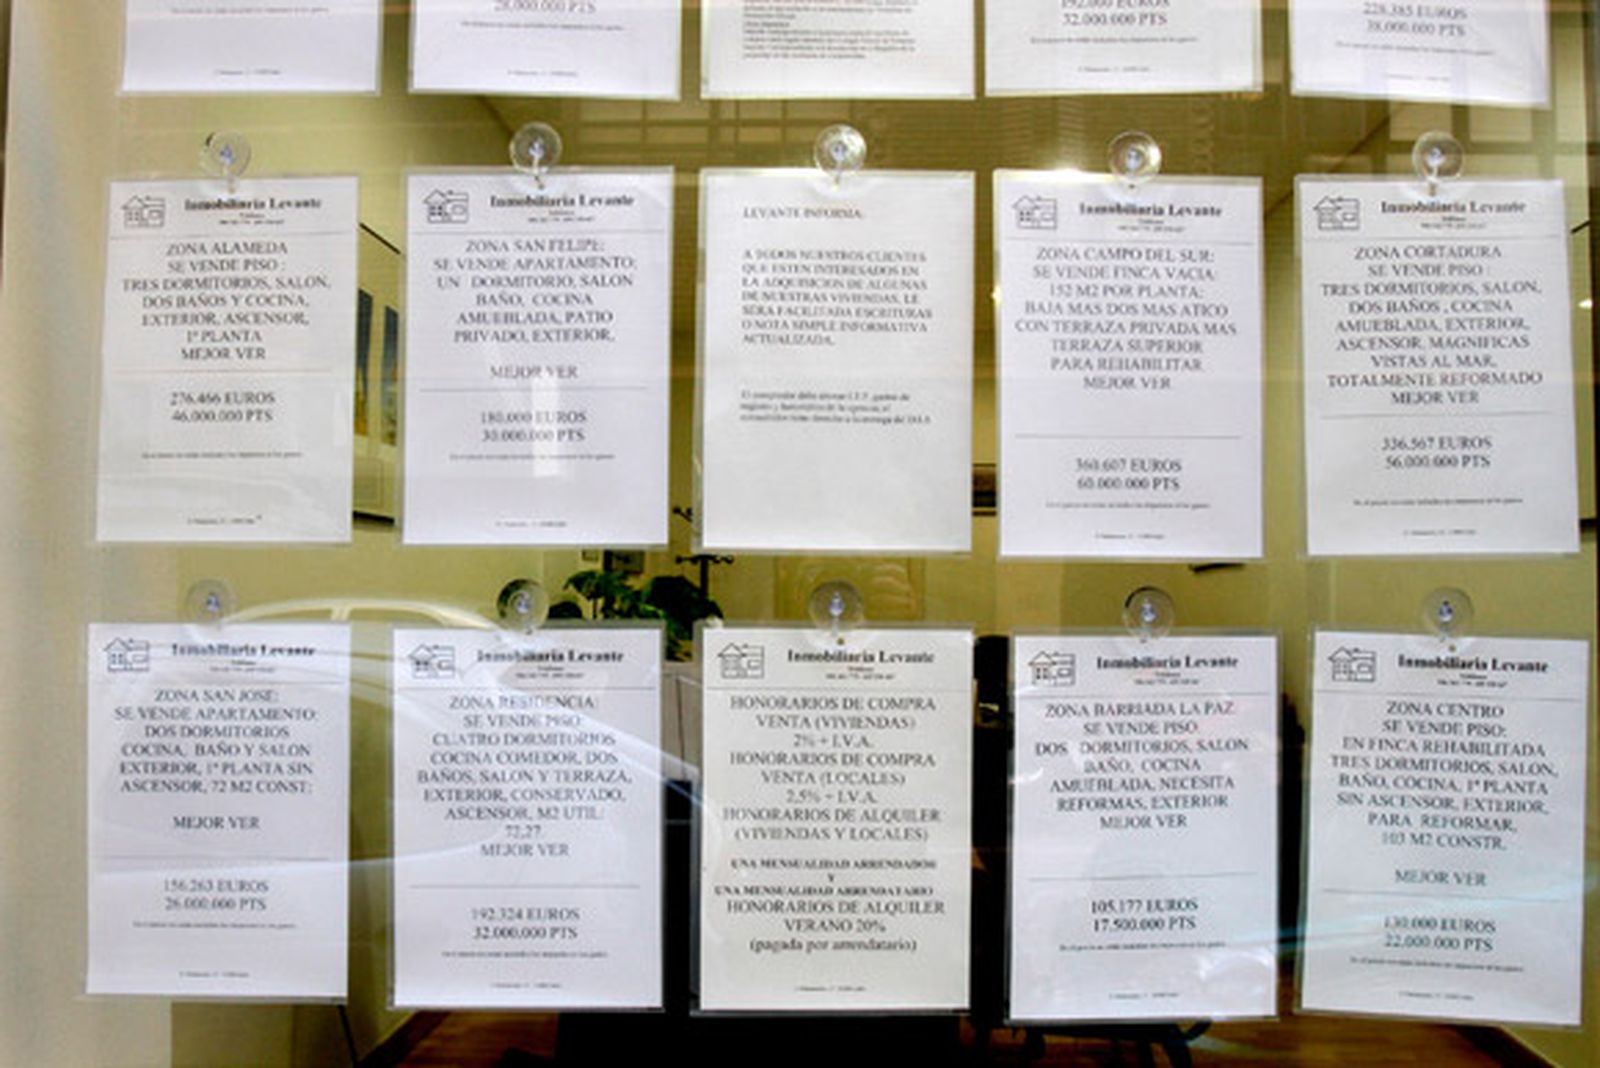 28.000.000 PTS
192.000 EUROS
32.000.000 PTS
228.385 EUROS
38.000.000 PTS
Inmobiliaria Levante
ZONA ALAMEDA
SE VENDE PISO :
TRES DORMITORIOS, SALON,
DOS BAÑOS Y COCINA,
EXTERIOR, ASCENSOR,
1ª PLANTA
MEJOR VER
276.466 EUROS
46.000.000 PTS
Inmobiliaria Levante
ZONA SAN FELIPE:
SE VENDE APARTAMENTO:
UN DORMITORIO, SALON
BAÑO, COCINA
AMUEBLADA, PATIO
PRIVADO, EXTERIOR,
MEJOR VER
180.000 EUROS
30.000.000 PTS
LEVANTE INFORMA:
A TODOS NUESTROS CLIENTES
QUE ESTEN INTERESADOS EN
LA ADQUISICION DE ALGUNAS
DE NUESTRAS VIVIENDAS, LE
SERA FACILITADA ESCRITURAS
O NOTA SIMPLE INFORMATIVA
ACTUALIZADA.
Inmobiliaria Levante
ZONA CAMPO DEL SUR:
SE VENDE FINCA VACIA:
152 M2 POR PLANTA:
BAJA MAS DOS MAS ATICO
CON TERRAZA PRIVADA MAS
TERRAZA SUPERIOR
PARA REHABILITAR
MEJOR VER
360.607 EUROS
60.000.000 PTS
Inmobiliaria Levante
ZONA CORTADURA
SE VENDE PISO :
TRES DORMITORIOS, SALON,
DOS BAÑOS , COCINA
AMUEBLADA, EXTERIOR,
ASCENSOR, MAGNIFICAS
VISTAS AL MAR,
TOTALMENTE REFORMADO
MEJOR VER
336.567 EUROS
56.000.000 PTS
Inmobiliaria Levante
ZONA SAN JOSE:
SE VENDE APARTAMENTO:
DOS DORMITORIOS
COCINA, BAÑO Y SALON
EXTERIOR, 1ª PLANTA SIN
ASCENSOR, 72 M2 CONST:
MEJOR VER
156.263 EUROS
26.000.000 PTS
Inmobiliaria Levante
ZONA RESIDENCIA:
SE VENDE PISO:
CUATRO DORMITORIOS
COCINA COMEDOR, DOS
BAÑOS, SALON Y TERRAZA,
EXTERIOR, CONSERVADO,
ASCENSOR, M2 UTIL:
72,27
MEJOR VER
192.324 EUROS
32.000.000 PTS
Inmobiliaria Levante
HONORARIOS DE COMPRA
VENTA (VIVIENDAS)
2% + I.V.A.
HONORARIOS DE COMPRA
VENTA (LOCALES)
2,5% + I.V.A.
HONORARIOS DE ALQUILER
(VIVIENDAS Y LOCALES)
UNA MENSUALIDAD ARRENDADOR
Y
UNA MENSUALIDAD ARRENDATARIO
HONORARIOS DE ALQUILER
VERANO 20%
(pagada por arrendatario)
Inmobiliaria Levante
ZONA BARRIADA LA PAZ
SE VENDE PISO:
DOS DORMITORIOS, SALON
BAÑO, COCINA
AMUEBLADA, NECESITA
REFORMAS, EXTERIOR
MEJOR VER
105.177 EUROS
17.500.000 PTS
Inmobiliaria Levante
ZONA CENTRO
SE VENDE PISO:
EN FINCA REHABILITADA
TRES DORMITORIOS, SALON,
BAÑO, COCINA, 1ª PLANTA
SIN ASCENSOR, EXTERIOR,
PARA REFORMAR,
103 M2 CONSTR,
MEJOR VER
130.000 EUROS
22.000.000 PTS